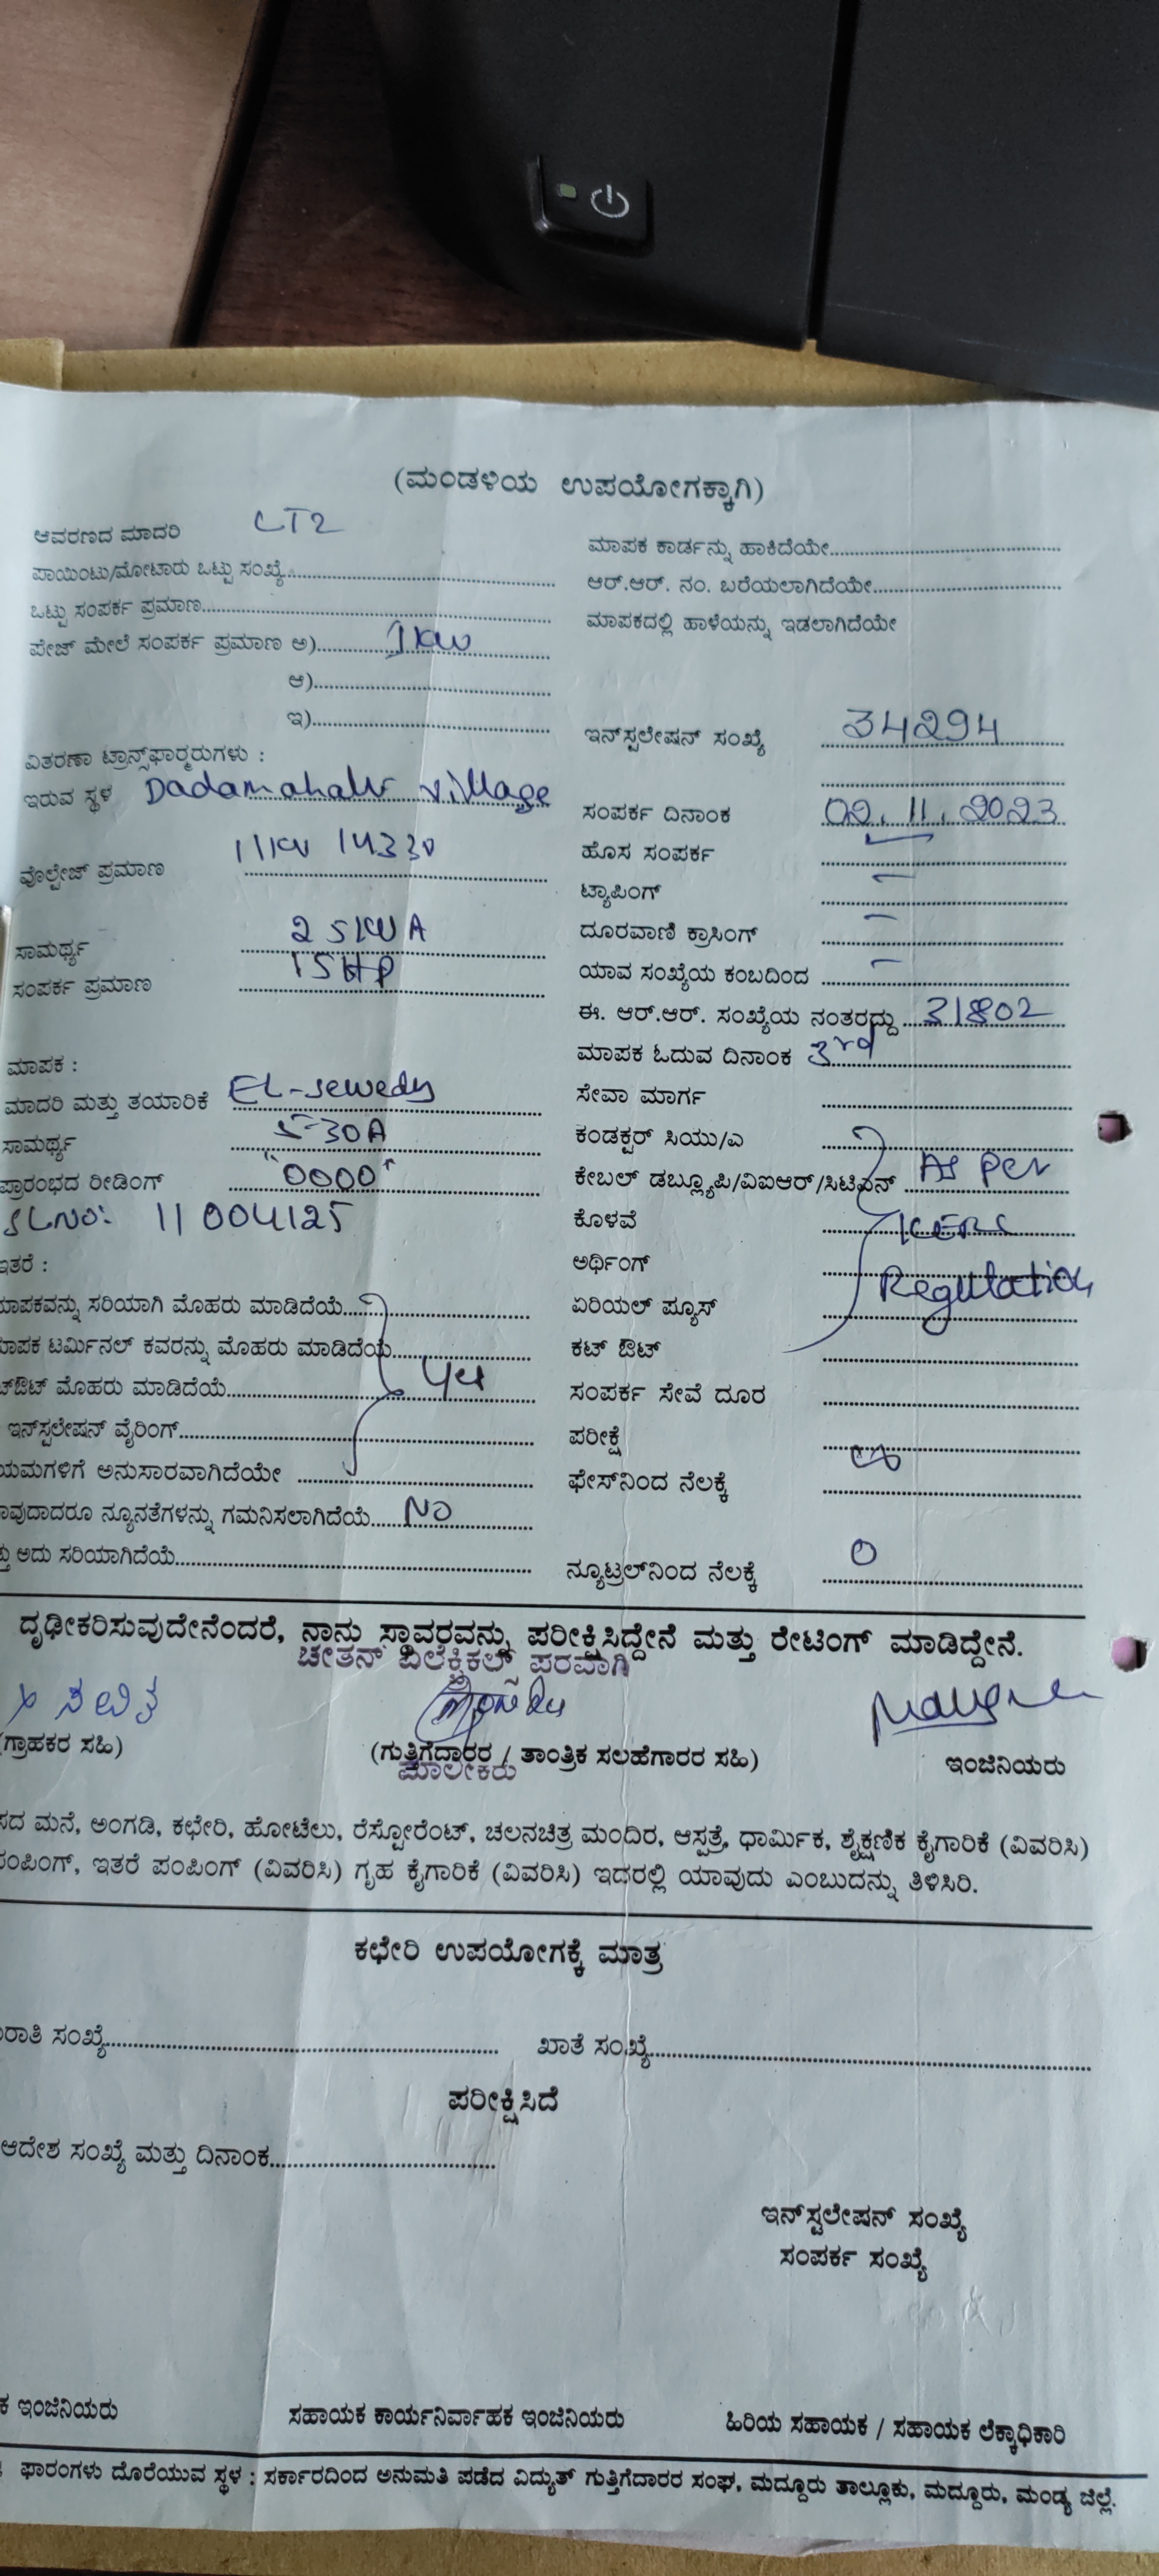 (ಮಂಡಳಿಯ ಉಪಯೋಗಕ್ಕಾಗಿ)
ಆವರಣದ ಮಾದರಿ LT2
ಪಾಯಿಂಟು/ಮೋಟಾರು ಒಟ್ಟು ಸಂಖ್ಯೆ
ಒಟ್ಟು ಸಂಪರ್ಕ ಪ್ರಮಾಣ
ಪೇಜ್ ಮೇಲೆ ಸಂಪರ್ಕ ಪ್ರಮಾಣ ಅ) 1kw
ಆ)
ಇ)
ವಿತರಣಾ ಟ್ರಾನ್ಸ್‌ಫಾರ್ಮರುಗಳು :
ಇರುವ ಸ್ಥಳ Dadamahalli village
ವೋಲ್ಟೇಜ್ ಪ್ರಮಾಣ 11KV
ಸಾಮರ್ಥ್ಯ 25KVA
ಸಂಪರ್ಕ ಪ್ರಮಾಣ 15HP
ಮಾಪಕ :
ಮಾದರಿ ಮತ್ತು ತಯಾರಿಕೆ EL-sewedy
ಸಾಮರ್ಥ್ಯ 5-30A
ಪ್ರಾರಂಭದ ರೀಡಿಂಗ್ "0000"
SLNO: 11004125
ಇತರೆ :
ಮಾಪಕವನ್ನು ಸರಿಯಾಗಿ ಮೊಹರು ಮಾಡಿದೆಯೆ
ಮಾಪಕ ಟರ್ಮಿನಲ್ ಕವರನ್ನು ಮೊಹರು ಮಾಡಿದೆಯೆ
ಟ್‌ಔಟ್ ಮೊಹರು ಮಾಡಿದೆಯೆ Yes
ಇನ್‌ಸ್ಪಲೇಷನ್ ವೈರಿಂಗ್
ಯಮಗಳಿಗೆ ಅನುಸಾರವಾಗಿದೆಯೇ
ಾವುದಾದರೂ ನ್ಯೂನತೆಗಳನ್ನು ಗಮನಿಸಲಾಗಿದೆಯೆ NO
ತ್ತು ಅದು ಸರಿಯಾಗಿದೆಯೆ
ಮಾಪಕ ಕಾರ್ಡನ್ನು ಹಾಕಿದೆಯೇ
ಆರ್.ಆರ್. ನಂ. ಬರೆಯಲಾಗಿದೆಯೇ
ಮಾಪಕದಲ್ಲಿ ಹಾಳೆಯನ್ನು ಇಡಲಾಗಿದೆಯೇ
ಇನ್‌ಸ್ಪಲೇಷನ್ ಸಂಖ್ಯೆ 34294
ಸಂಪರ್ಕ ದಿನಾಂಕ 02.11.2023
ಹೊಸ ಸಂಪರ್ಕ
ಟ್ಯಾಪಿಂಗ್
ದೂರವಾಣಿ ಕ್ರಾಸಿಂಗ್
ಯಾವ ಸಂಖ್ಯೆಯ ಕಂಬದಿಂದ
ಈ. ಆರ್.ಆರ್. ಸಂಖ್ಯೆಯ ನಂತರದ್ದು 31802
ಮಾಪಕ ಓದುವ ದಿನಾಂಕ 3rd
ಸೇವಾ ಮಾರ್ಗ
ಕಂಡಕ್ಟರ್ ಸಿಯು/ಎ
ಕೇಬಲ್ ಡಬ್ಲ್ಯೂಪಿ/ವಿಐಆರ್/ಸಿಟಿಎಸ್ As per
ಕೊಳವೆ KERC
ಅರ್ಥಿಂಗ್ Regulation
ಏರಿಯಲ್ ಪ್ಯೂಸ್
ಕಟ್ ಔಟ್
ಸಂಪರ್ಕ ಸೇವೆ ದೂರ
ಪರೀಕ್ಷೆ
ಫೇಸ್‌ನಿಂದ ನೆಲಕ್ಕೆ ∞
ನ್ಯೂಟ್ರಲ್‌ನಿಂದ ನೆಲಕ್ಕೆ 0
ದೃಢೀಕರಿಸುವುದೇನೆಂದರೆ, ನಾನು ಸ್ಥಾವರವನ್ನು ಪರೀಕ್ಷಿಸಿದ್ದೇನೆ ಮತ್ತು ರೇಟಿಂಗ್ ಮಾಡಿದ್ದೇನೆ.
ಚೇತನ್ ಎಲೆಕ್ಟ್ರಿಕಲ್ಸ್ ಪರವಾಗಿ
(ಗ್ರಾಹಕರ ಸಹಿ) (ಗುತ್ತಿಗೆದಾರರ / ತಾಂತ್ರಿಕ ಸಲಹೆಗಾರರ ಸಹಿ) ಇಂಜಿನಿಯರು
ಮಾಲೀಕರು
ಸದ ಮನೆ, ಅಂಗಡಿ, ಕಛೇರಿ, ಹೋಟೆಲು, ರೆಸ್ಟೋರೆಂಟ್, ಚಲನಚಿತ್ರ ಮಂದಿರ, ಆಸ್ಪತ್ರೆ, ಧಾರ್ಮಿಕ, ಶೈಕ್ಷಣಿಕ ಕೈಗಾರಿಕೆ (ವಿವರಿಸಿ)
ಪಂಪಿಂಗ್, ಇತರೆ ಪಂಪಿಂಗ್ (ವಿವರಿಸಿ) ಗೃಹ ಕೈಗಾರಿಕೆ (ವಿವರಿಸಿ) ಇದರಲ್ಲಿ ಯಾವುದು ಎಂಬುದನ್ನು ತಿಳಿಸಿರಿ.
ಕಛೇರಿ ಉಪಯೋಗಕ್ಕೆ ಮಾತ್ರ
ರಾತಿ ಸಂಖ್ಯೆ ಖಾತೆ ಸಂಖ್ಯೆ
ಪರೀಕ್ಷಿಸಿದೆ
ಆದೇಶ ಸಂಖ್ಯೆ ಮತ್ತು ದಿನಾಂಕ
ಇನ್‌ಸ್ಟಲೇಷನ್ ಸಂಖ್ಯೆ
ಸಂಪರ್ಕ ಸಂಖ್ಯೆ
ಕ ಇಂಜಿನಿಯರು ಸಹಾಯಕ ಕಾರ್ಯನಿರ್ವಾಹಕ ಇಂಜಿನಿಯರು ಹಿರಿಯ ಸಹಾಯಕ / ಸಹಾಯಕ ಲೆಕ್ಕಾಧಿಕಾರಿ
ಫಾರಂಗಳು ದೊರೆಯುವ ಸ್ಥಳ : ಸರ್ಕಾರದಿಂದ ಅನುಮತಿ ಪಡೆದ ವಿದ್ಯುತ್ ಗುತ್ತಿಗೆದಾರರ ಸಂಘ, ಮದ್ದೂರು ತಾಲ್ಲೂಕು, ಮದ್ದೂರು, ಮಂಡ್ಯ ಜಿಲ್ಲೆ.